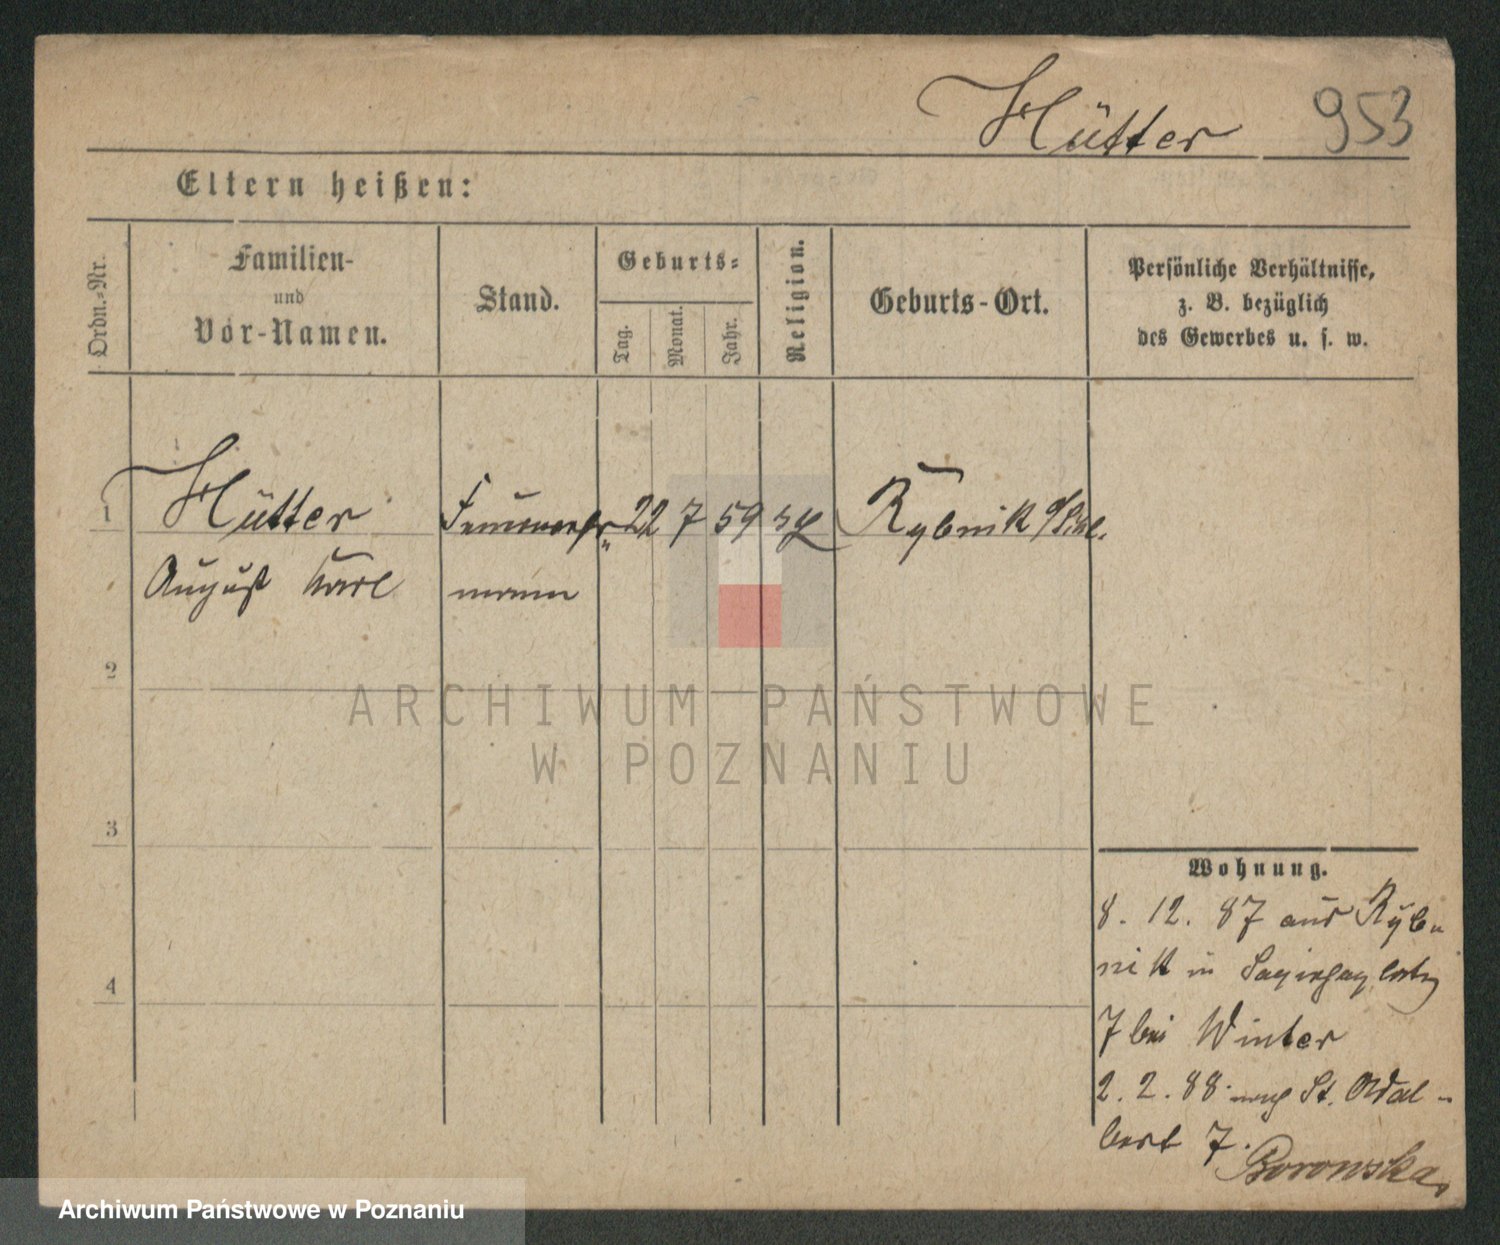 Hütter 953
Eltern heißen:
Ordn.-Nr.
Familien-
und
Vor-Namen.
Stand.
Geburts-
Tag.
Monat.
Jahr.
Religion.
Geburts-Ort.
Persönliche Verhältnisse,
z. B. bezüglich
des Gewerbes u. s. w.
1 Hütter 22 7 59 Rybnik
August Karl mann
2
3
4
ARCHIWUM PAŃSTWOWE
W POZNANIU
Wohnung.
8. 12. 87 aus Ryb-
nik in
7 bei Winter
2. 2. 88 nach St. Adal-
bert 7.
Borowska
Archiwum Państwowe w Poznaniu